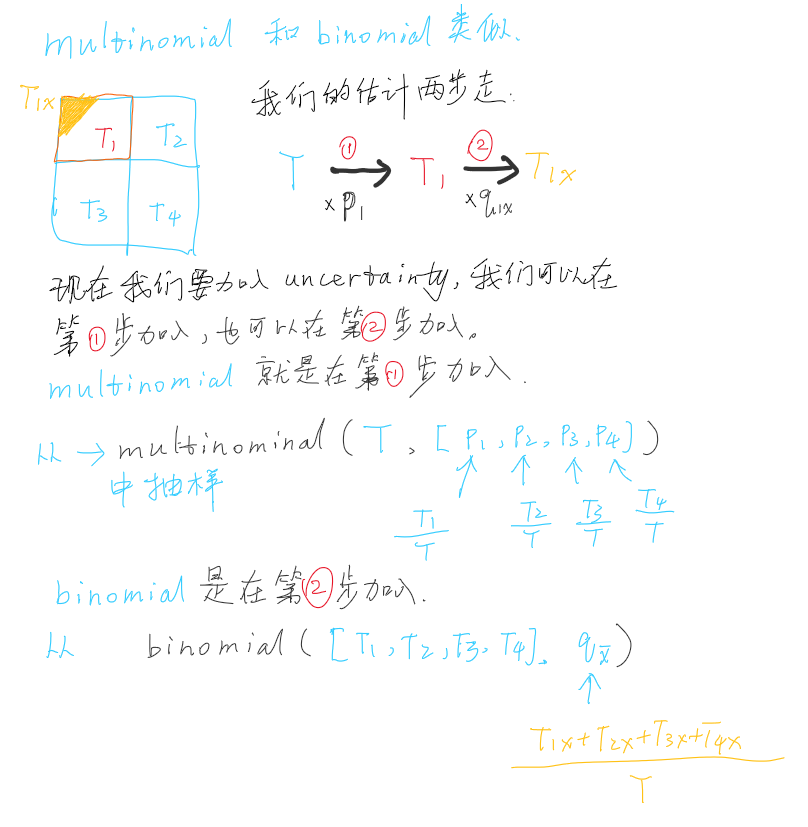 multinomial 和 binomial 类似.
T1x
我们的估计两步走:
T1 T2
T3 T4
① ②
T → T1 → T1x
×p1 ×q1x
现在我们要加入 uncertainty, 我们可以在
第①步加入, 也可以在第②步加入。
multinomial 就是在第①步加入.
从 → multinominal ( T , [ p1, p2, p3, p4] )
中抽样
T1/T T2/T T3/T T4/T
binomial 是在第②步加入.
从 binomial ( [T1, T2, T3, T4], qx̄ )
T1x+T2x+T3x+T4x
T